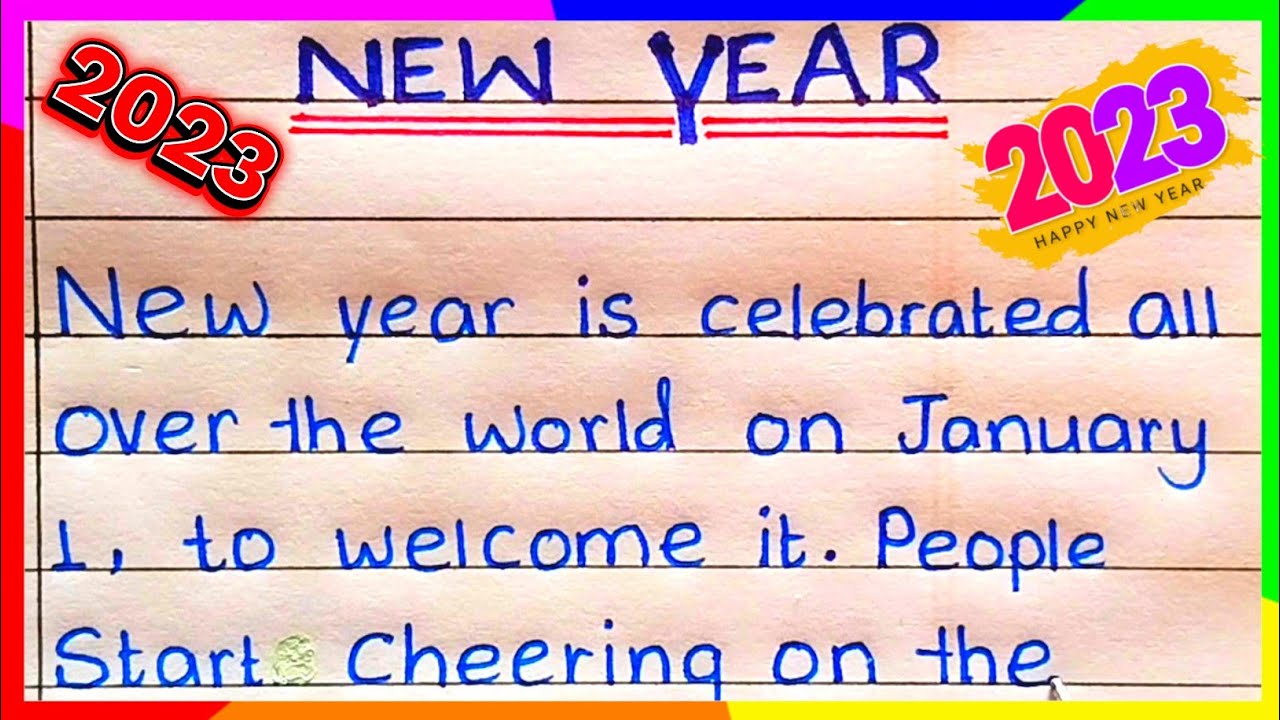 NEW YEAR
2023
2023
HAPPY NEW YEAR
New year is celebrated all
over the world on January
1, to welcome it. People
Start Cheering on the